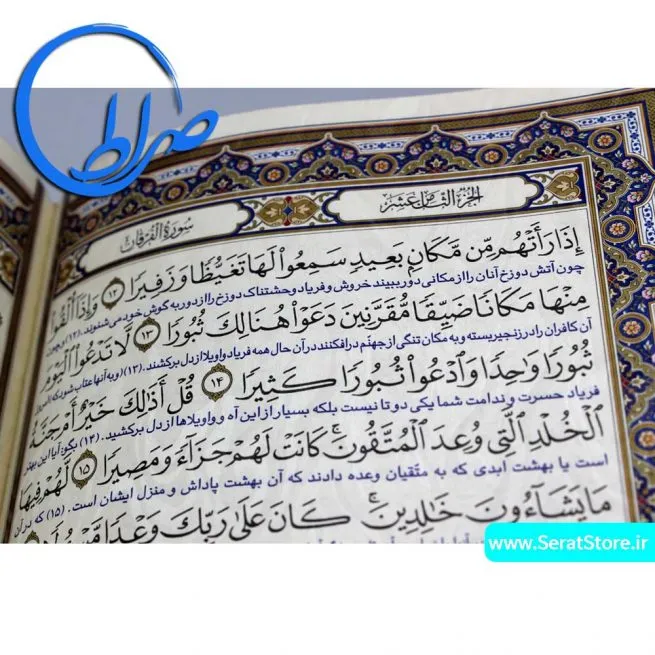 صراط
الجزء الثامن عشر
سورة الفرقان
إِذَا رَأَتْهُم مِّن مَّكَانٍ بَعِيدٍ سَمِعُوا۟ لَهَا تَغَيُّظًا وَزَفِيرًا ١٢ وَإِذَآ أُلْقُوا۟
چون آتش دوزخ آنان را از مکانی دور ببیند خروش و فریاد وحشتناک دوزخ را از دور به گوش خود می‌شنوند. (۱۲) و چون
مِنْهَا مَكَانًا ضَيِّقًا مُّقَرَّنِينَ دَعَوْا۟ هُنَالِكَ ثُبُورًا ١٣ لَّا تَدْعُوا۟ الْيَوْمَ
آن کافران را در زنجیر بسته و به مکان تنگی از جهنّم درافکنند در آن حال همه فریاد واویلا از دل برکشند. (۱۳) (و به آنها عتاب شود که)
ثُبُورًا وَٰحِدًا وَادْعُوا۟ ثُبُورًا كَثِيرًا ١٤ قُلْ أَذَٰلِكَ خَيْرٌ أَمْ جَنَّةُ
فریاد حسرت و ندامت شما یکی دو تا نیست بلکه بسیار از این آه و واویلاها از دل برکشید. (۱۴) بگو: آیا این بهتر
الْخُلْدِ الَّتِى وُعِدَ الْمُتَّقُونَ ۚ كَانَتْ لَهُمْ جَزَآءً وَمَصِيرًا ١٥ لَّهُمْ فِيهَا
است یا بهشت ابدی که به متّقیان وعده دادند که آن بهشت پاداش و منزل ایشان است. (۱۵) که در آن
مَا يَشَآءُونَ خَٰلِدِينَ ۚ كَانَ عَلَىٰ رَبِّكَ وَعْدًا
www.SeratStore.ir